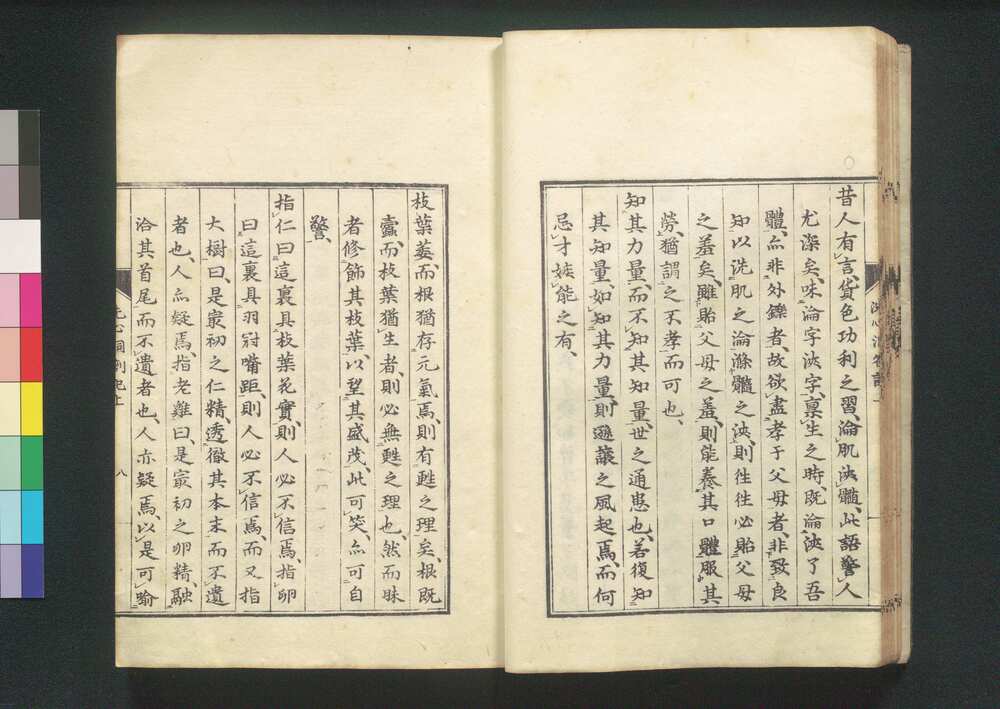 昔人有言、貨色功利之習、淪肌浹髓、此語警人
尤深矣、味淪字浹字、稟生之時、既淪浹了吾
體、亦非外鑠者、故欲盡孝于父母者、非致良
知以洗肌之淪滌髓之浹、則往往必貽父母
之羞矣、雖貽父母之羞、則能養其口體、服其
勞、猶謂之不孝而可也、
知其力量、而不知其知量、世之通患也、若復知
其知量、如知其力量、則遜讓之風起焉、而何
忌才嫉能之有、
洗心洞劄記上
枝葉萎、而根猶存元氣焉、則有甦之理矣、根既
蠹、而枝葉猶生者、則必無甦之理也、然而昧
者修飾其枝葉、以望其盛茂、此可笑、亦可自
警、
指仁曰、這裏具枝葉花實、則人必不信焉、指卵
曰、這裏具羽冠嘴距、則人必不信焉、而又指
大樹曰、是最初之仁精、透徹其本末而不遺
者也、人亦疑焉、指老雞曰、是最初之卵精、融
洽其首尾而不遺者也、人亦疑焉、以是可喻
洗心洞劄記上
八